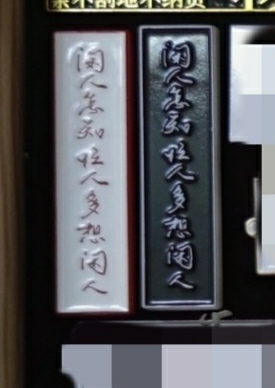 闲人怎知忙人多想闲人
闲人怎知忙人多想闲人